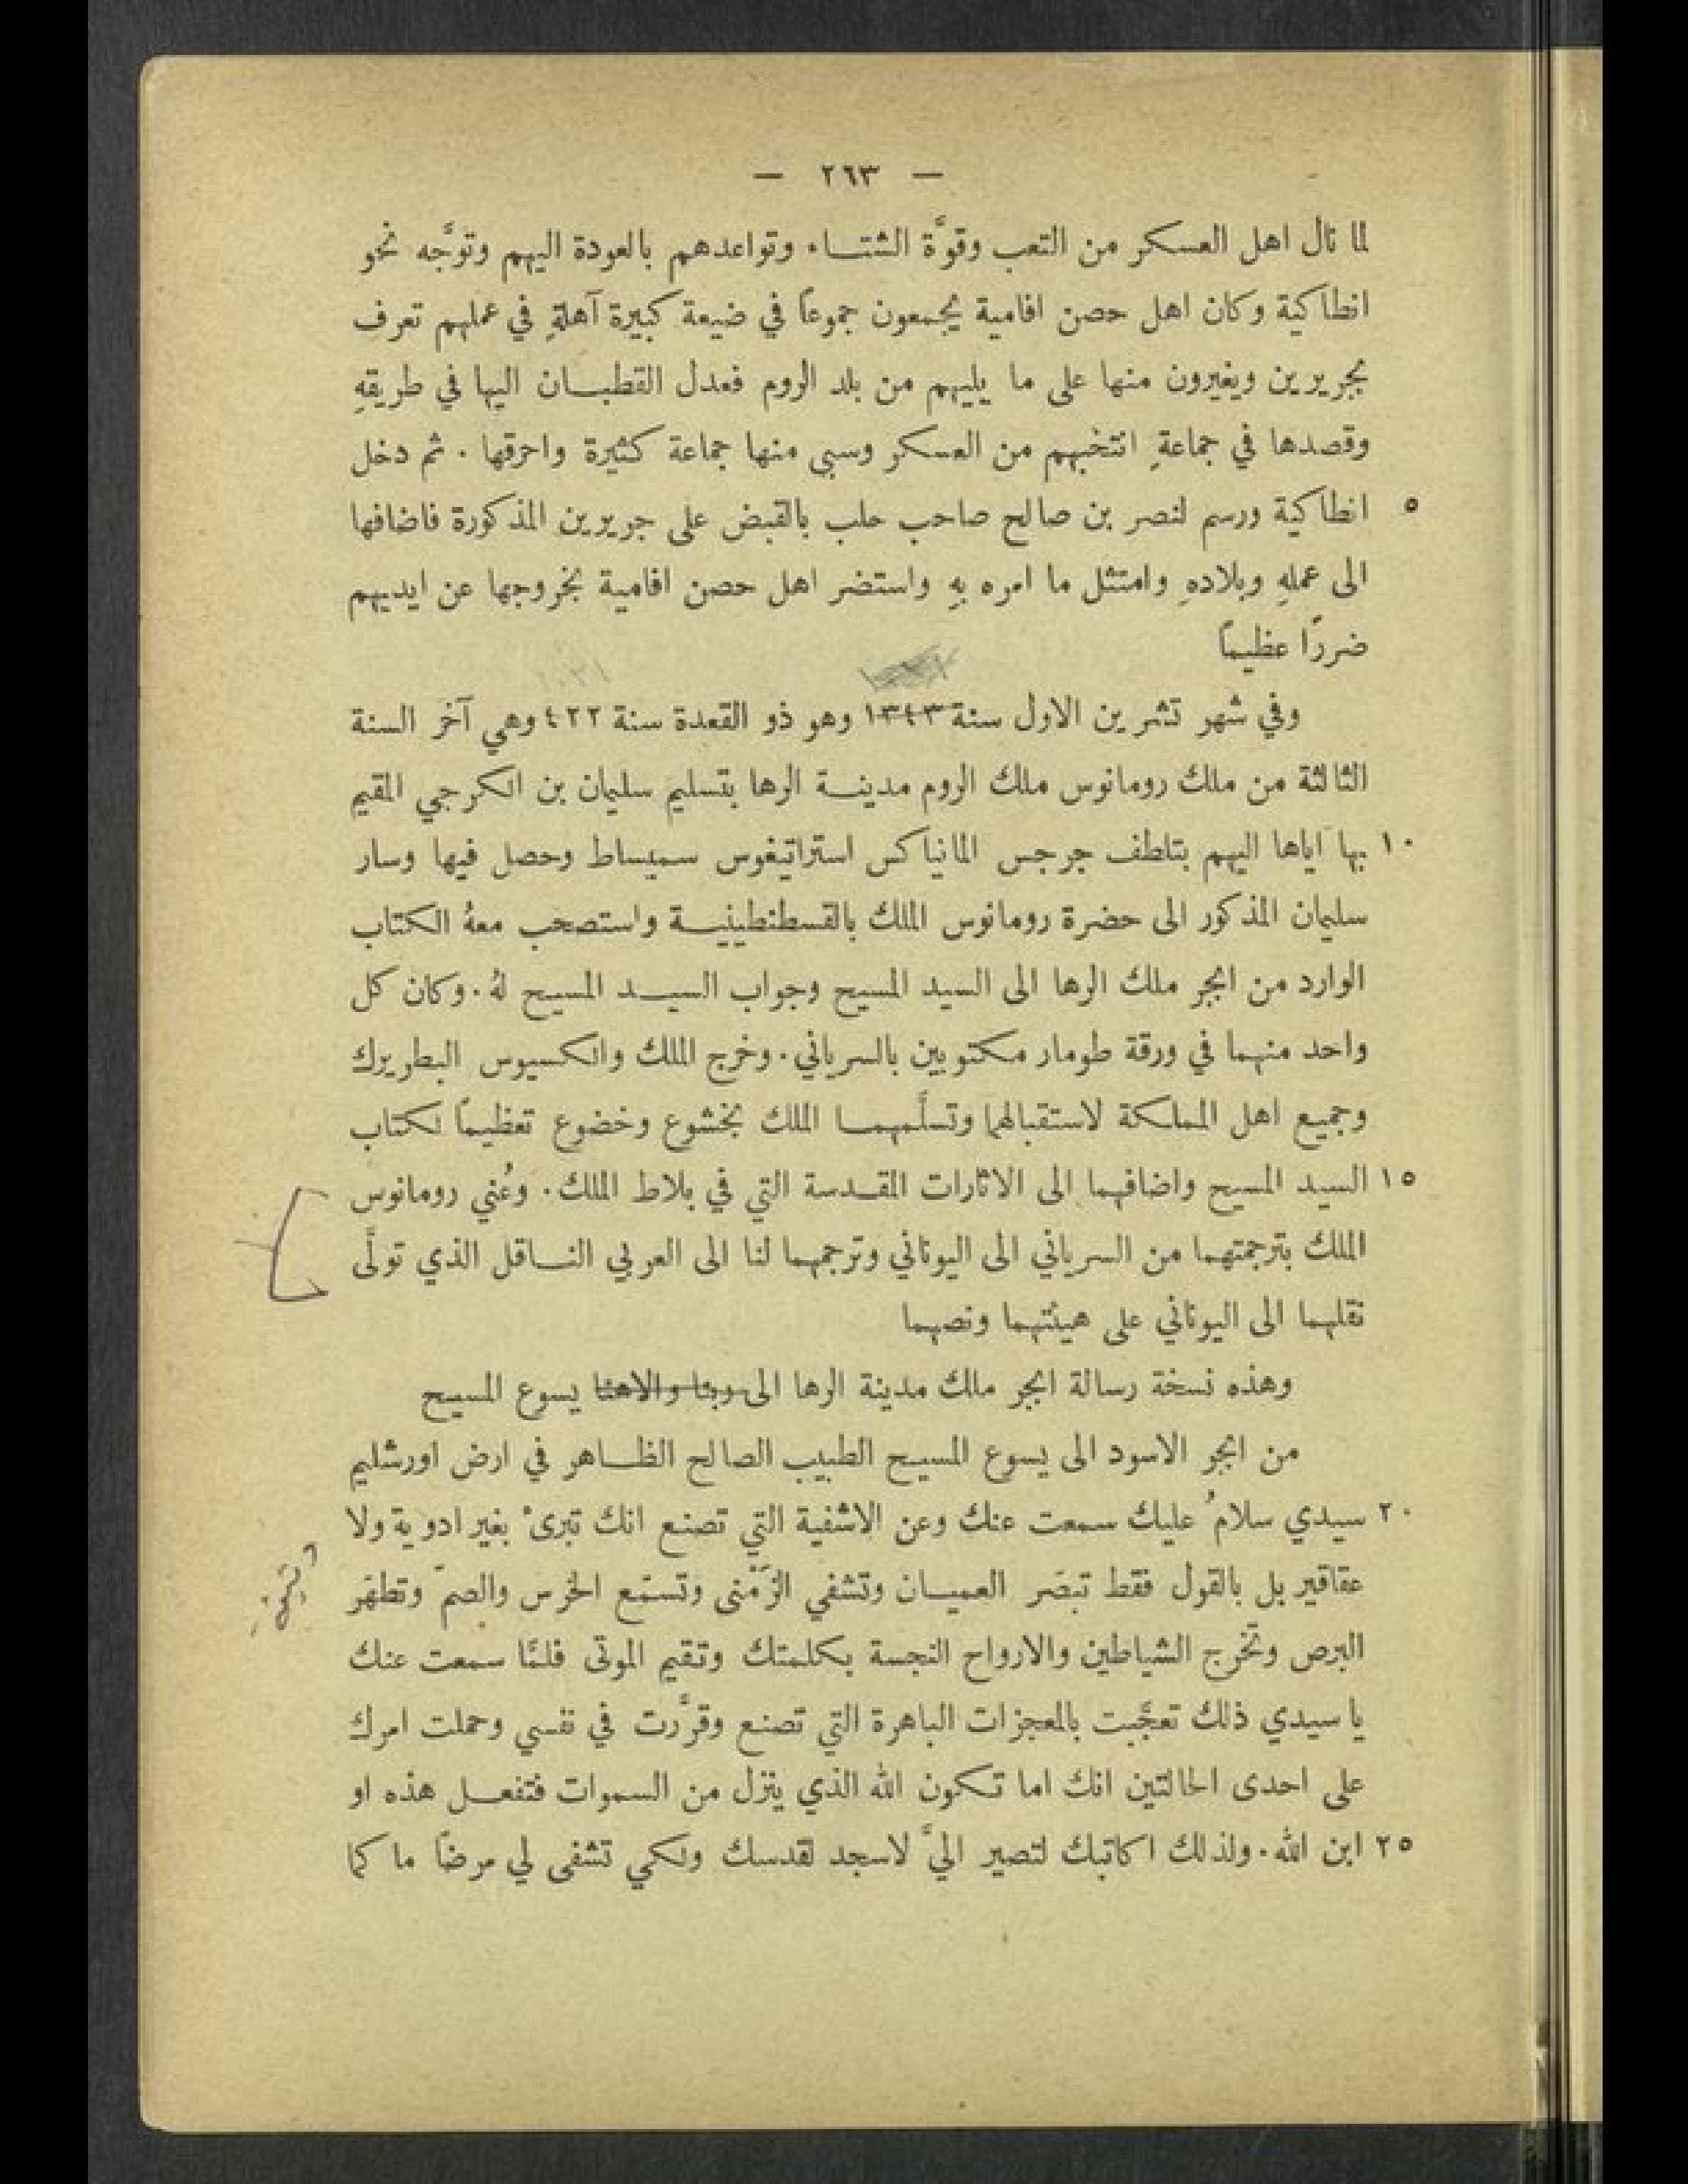 — ٢٦٣ —
لما نال اهل العسكر من التعب وقوَّة الشتاء وتواعدهم بالعودة اليهم وتوجَّه نحو
انطاكية وكان اهل حصن افامية يجمعون جموعًا في ضيعة كبيرة آهلةٍ في عملهم تعرف
بجريرين ويغيرون منها على ما يليهم من بلد الروم فعدل القطبان اليها في طريقهِ
وقصدها في جماعةٍ انتخبهم من العسكر وسبى منها جماعة كثيرة واحرقها . ثم دخل
٥ انطاكية ورسم لنصر بن صالح صاحب حلب بالقبض على جريرين المذكورة فاضافها
الى عملهِ وبلادهِ وامتثل ما امره بهِ واستضر اهل حصن افامية بخروجها عن ايديهم
ضررًا عظيمًا
وفي شهر تشرين الاول سنة ١٣٤٣ وهو ذو القعدة سنة ٤٢٢ وهي آخر السنة
الثالثة من ملك رومانوس ملك الروم مدينة الرها بتسليم سليمان بن الكرجي المقيم
١٠ بها اياها اليهم بتلطف جرجس المانياكس استراتيغوس سميساط وحصل فيها وسار
سليمان المذكور الى حضرة رومانوس الملك بالقسطنطينية واستصحب معهُ الكتاب
الوارد من ابجر ملك الرها الى السيد المسيح وجواب السيد المسيح لهُ. وكان كل
واحد منهما في ورقة طومار مكتوبين بالسرياني. وخرج الملك والكسيوس البطريرك
وجميع اهل المملكة لاستقبالهما وتسلَّمهما الملك بخشوع وخضوع تعظيمًا لكتاب
١٥ السيد المسيح واضافهما الى الاثارات المقدسة التي في بلاط الملك. وعُني رومانوس
الملك بترجمتهما من السرياني الى اليوناني وترجمهما لنا الى العربي الناقل الذي تولَّى
نقلهما الى اليوناني على هيئتهما ونصهما
وهذه نسخة رسالة ابجر ملك مدينة الرها الى ربنا والاهنا يسوع المسيح
من ابجر الاسود الى يسوع المسيح الطبيب الصالح الظاهر في ارض اورشليم
٢٠ سيدي سلامُ عليك سمعت عنك وعن الاشفية التي تصنع انك تبرئ بغير ادوية ولا
عقاقير بل بالقول فقط تبصّر العميان وتشفي الزَمْنى وتسمّع الخرس والصمّ وتطهّر
البرص وتخرج الشياطين والارواح النجسة بكلمتك وتقيم الموتى فلمَّا سمعت عنك
يا سيدي ذلك تعجَّبت بالمعجزات الباهرة التي تصنع وقرَّرت في نفسي وحملت امرك
على احدى الحالتين انك اما تكون الله الذي ينزل من السموات فتفعل هذه او
٢٥ ابن الله. ولذلك اكاتبك لتصير اليَّ لاسجد لقدسك ولكي تشفى لي مرضًا ما كما